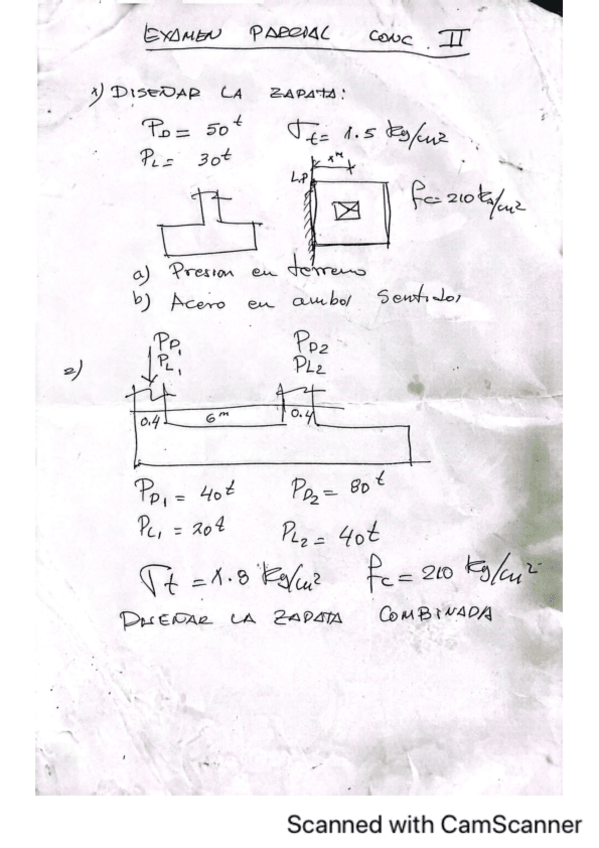 EXAMEN PARCIAL CONC. II
1) DISEÑAR LA ZAPATA:
PD = 50t σt = 1.5 kg/cm2
PL = 30t
L.P
f'c = 210 kg/cm2
a) Presion en terreno
b) Acero en ambos Sentidos
2)
PD1 PD2
PL1 PL2
0.4 6m 0.4
PD1 = 40t PD2 = 80t
PL1 = 20t PL2 = 40t
σt = 1.8 kg/cm2 f'c = 210 kg/cm2
DISEÑAR LA ZAPATA COMBINADA
Scanned with CamScanner